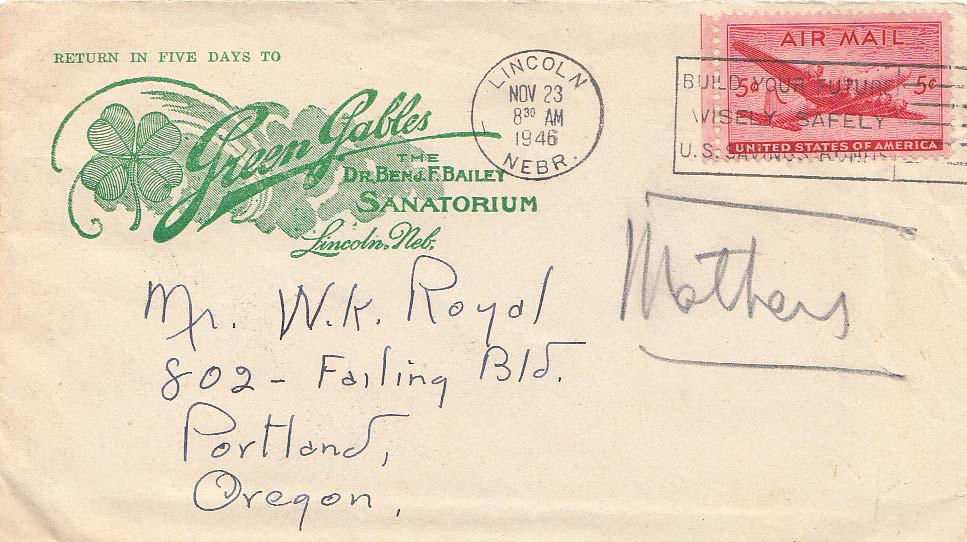 RETURN IN FIVE DAYS TO
Green Gables
THE
DR. BENJ. F. BAILEY
SANATORIUM
Lincoln, Neb.
LINCOLN
NOV 23
8³⁰ AM
1946
NEBR.
AIR MAIL
5¢ 5¢
UNITED STATES OF AMERICA
BUILD YOUR FUTURE
WISELY SAFELY
U.S. SAVINGS BONDS
Mr. W. K. Royal
802 - Failing Bld.
Portland,
Oregon,
Mathers